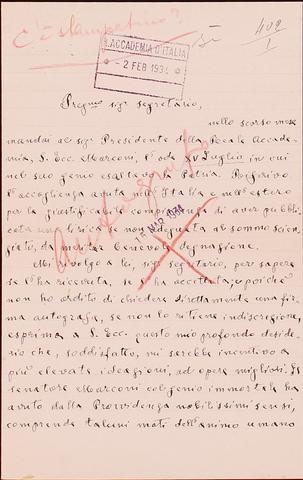 C'è stampatino?
Sì
402
1
R. ACCADEMIA D'ITALIA
- 2 FEB 1934
Pregmo sigr segretario,
nello scorso mese
mandai al sigr Presidente della Reale Accade-
mia, S. Ecc. Marconi, l'ode XV Luglio in cui
nel suo genio esaltavo la Patria. Riferivo
l'accoglienza avuta nell'Italia e nell'estero
per la giustificabile compiacenza di aver pubbli-
cata una lirica se non adeguata al sommo scien-
ziato, da meritar benevola degnazione.
Mi rivolgo a lei, sigr segretario, per sapere
se l'ha ricevuta, se l'ha accettata; e poiché
non ho ardito di chiedere direttamente una fir-
ma autografa, se non lo ritiene indiscrezione,
esprima a S. Ecc. questo mio profondo deside-
rio che, soddisfatto, mi sarebbe incentivo a
più elevate ideazioni, ad opere migliori. Il
senatore Marconi col genio immortale ha
avuto dalla Provvidenza nobilissimi sensi,
comprende taluni moti dell'animo umano
1934